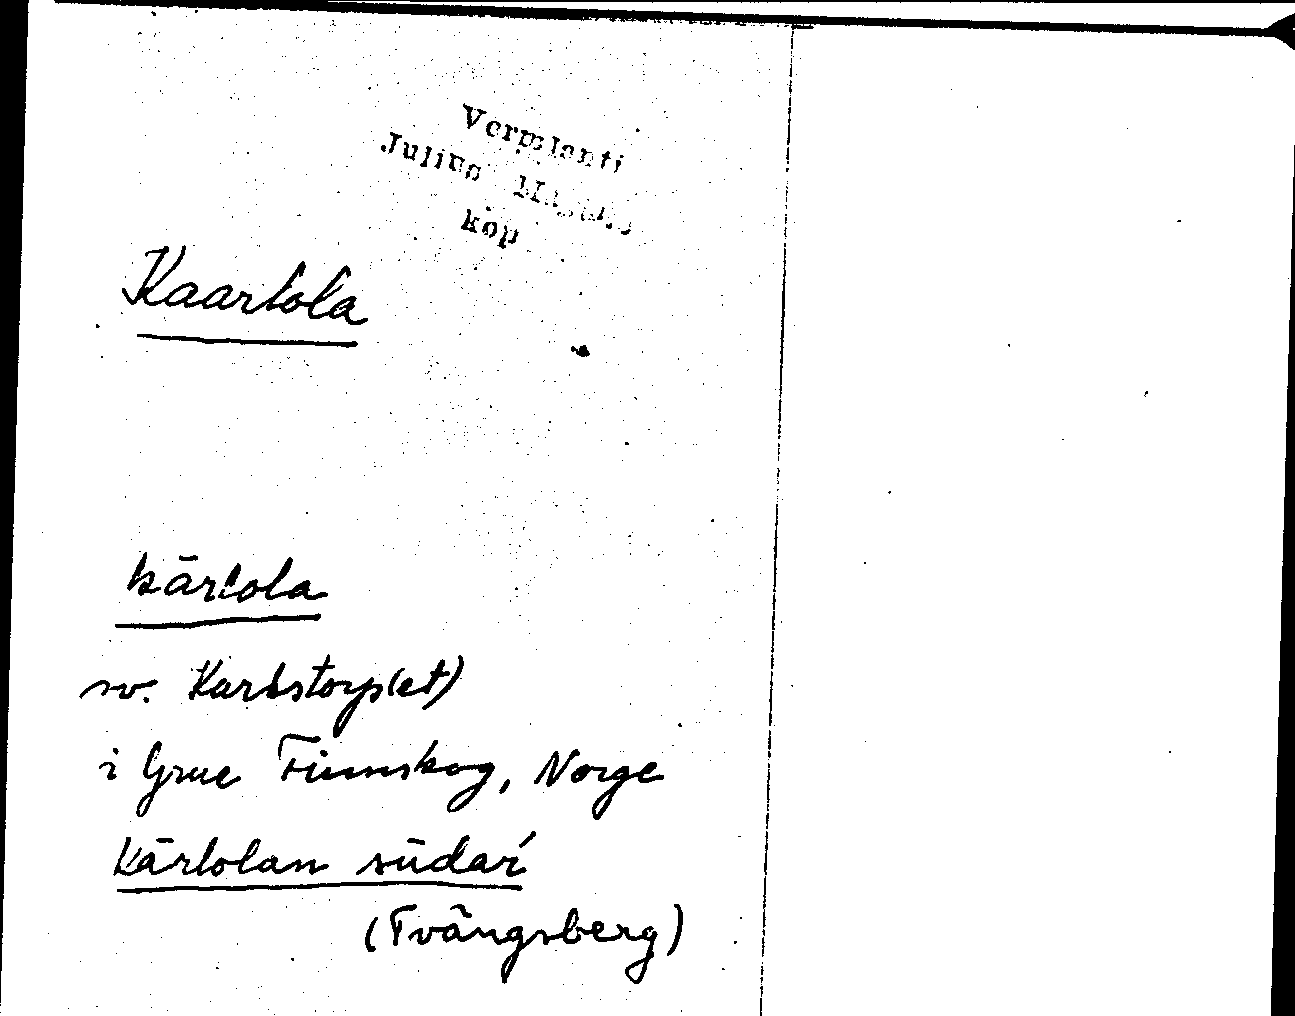 Vermlanti
Julius
köp
Kaarlola
kārlola
sv. Karlstorp(et)
i Grue Finnskog, Norge
kārlolan sūdaŕ
(Tvängsberg)